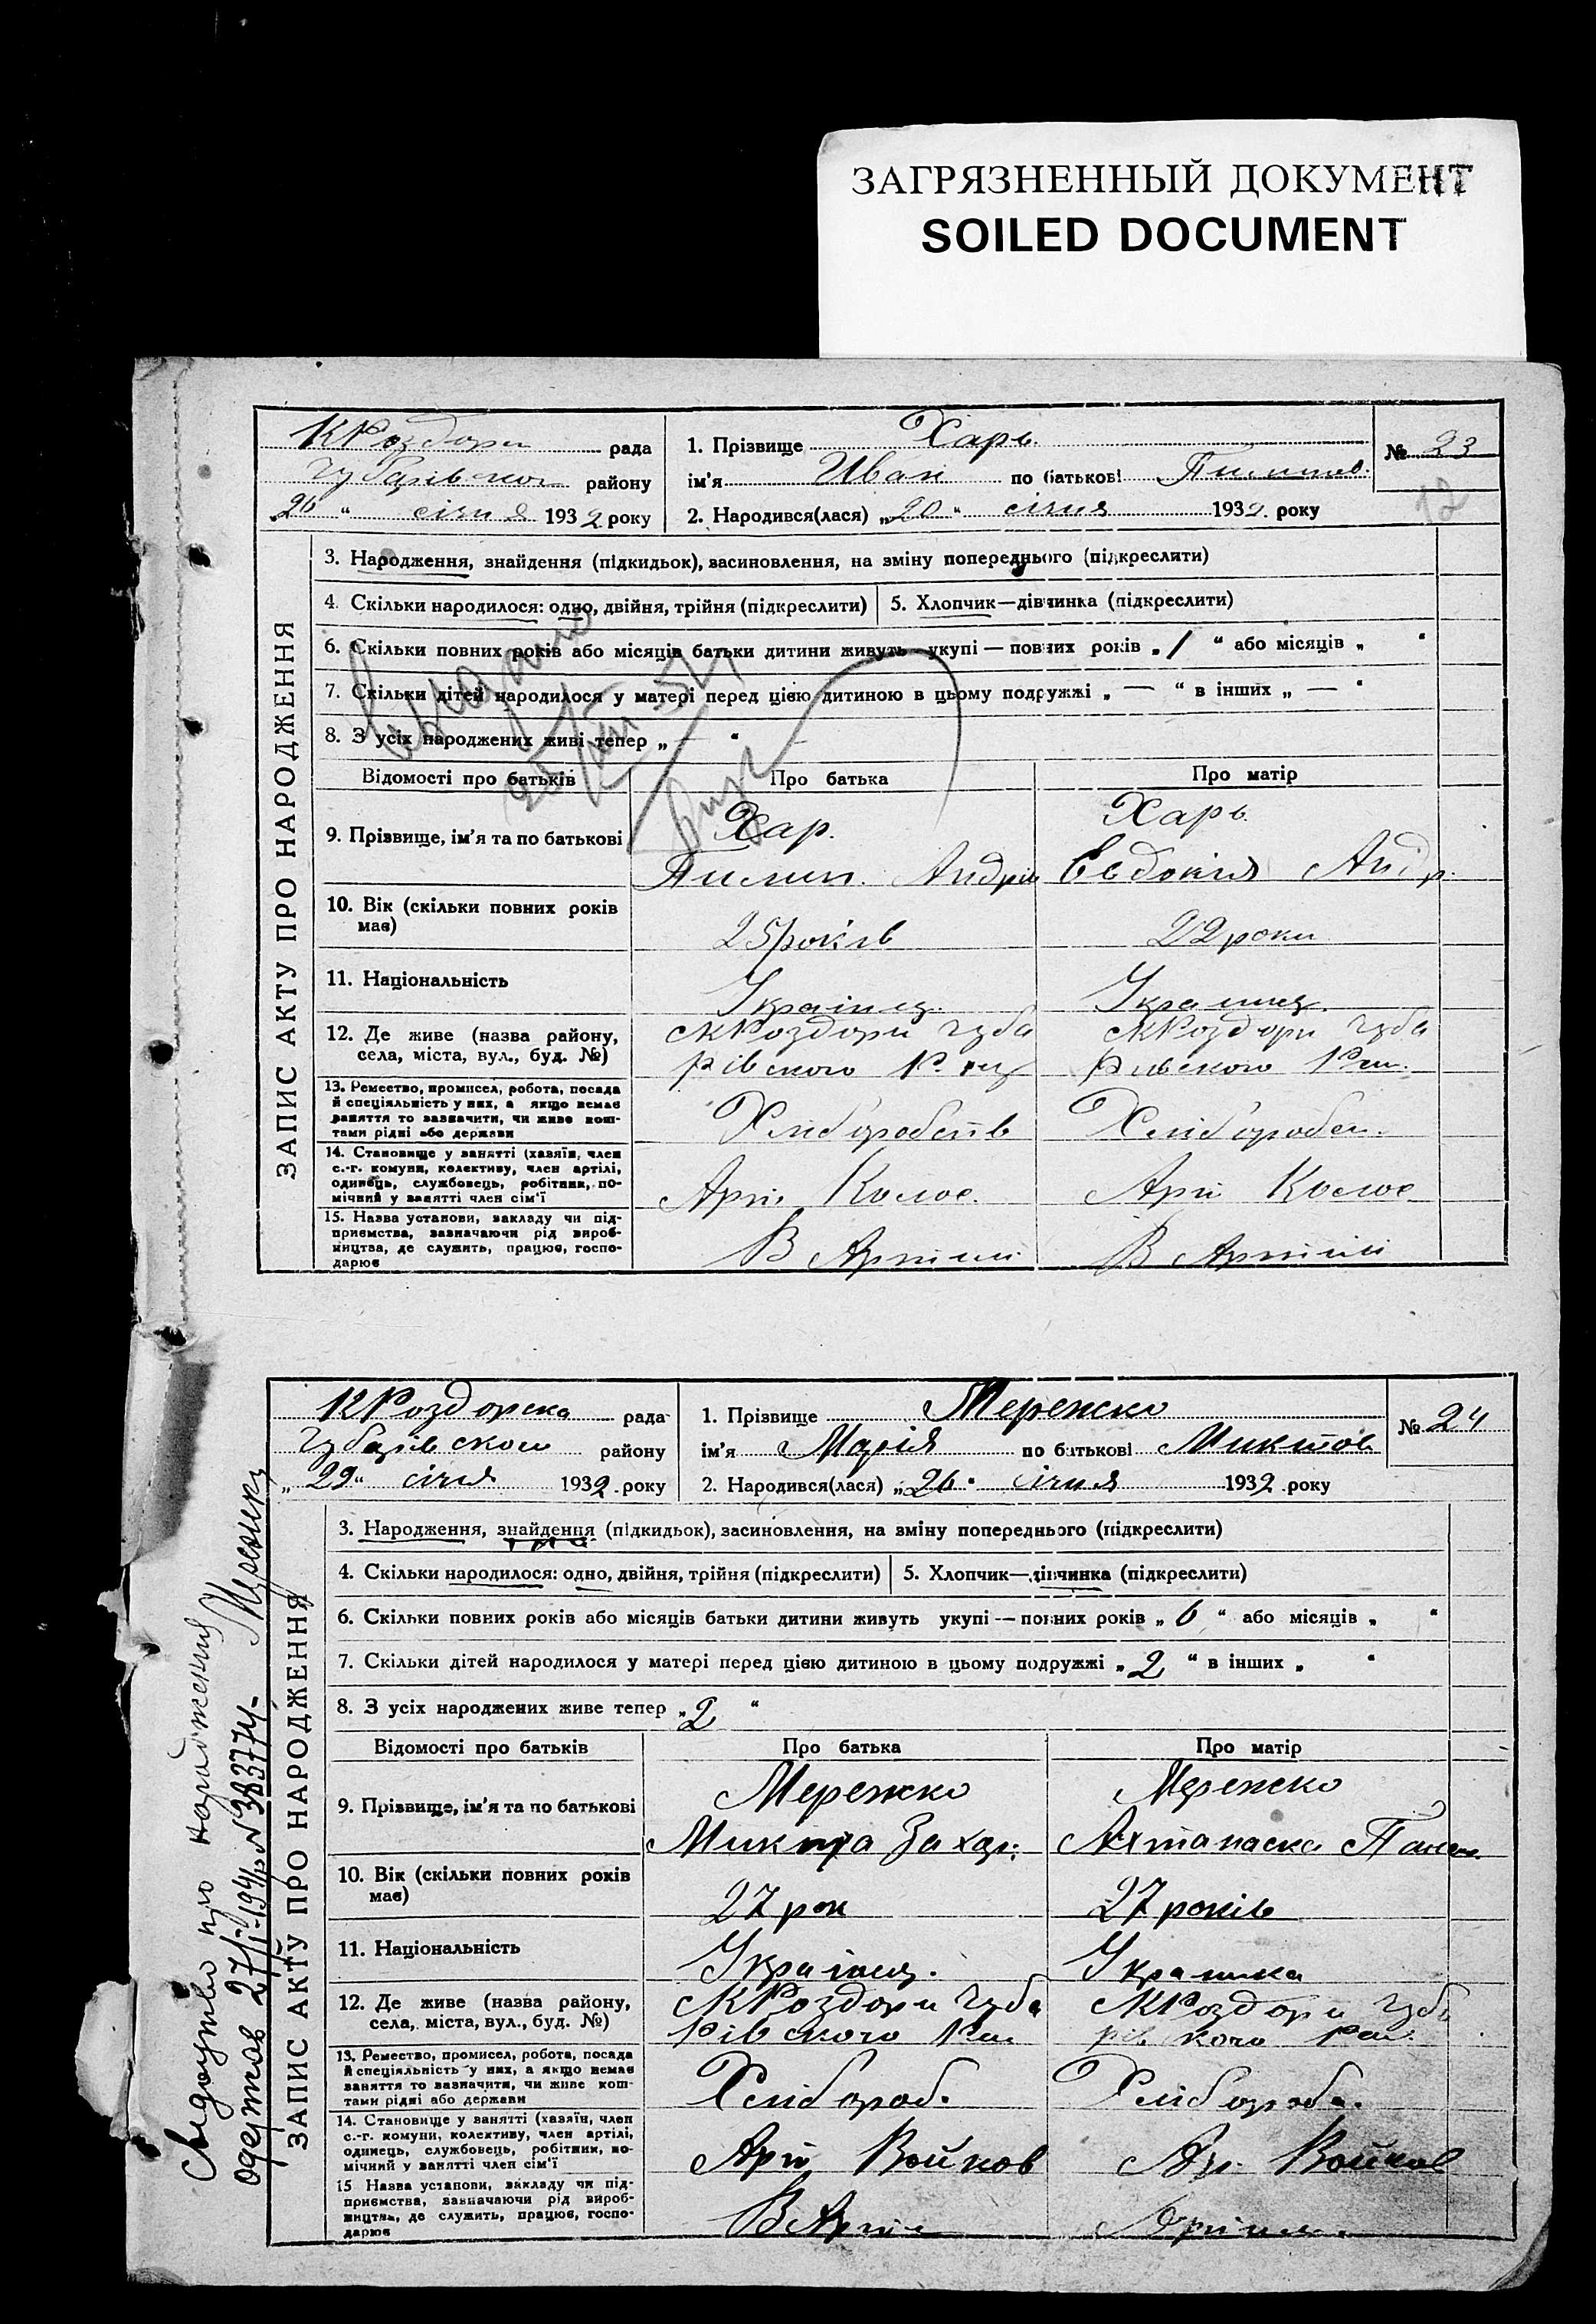 ЗАГРЯЗНЕННЫЙ ДОКУМЕНТ
SOILED DOCUMENT
ЗАПИС АКТУ ПРО НАРОДЖЕННЯ
КРоздори рада
Чубарівськог району
„26“ січня 1932 року
1. Прізвище Харь
ім'я Иван по батькові
2. Народився(лася) „20“ січня 1932 року
№ 23
12
3. Народження, знайдення (підкидьок), засиновлення, на зміну попереднього (підкреслити)
4. Скільки народилося: одно, двійня, трійня (підкреслити)
5. Хлопчик—дівчинка (підкреслити)
6. Скільки повних років або місяців батьки дитини живуть укупі — повних років „1“ або місяців „ “
7. Скільки дітей народилося у матері перед цією дитиною в цьому подружжі „—“ в інших „—“
8. З усіх народжених живі тепер „—“
Відомості про батьків Про батька Про матір
9. Прізвище, ім'я та по батькові
Хар. Харь
Пилип. Андрій Евдокія Андр.
10. Вік (скільки повних років має)
25 років 22 роки
11. Національність
Українц. Украинц.
12. Де живе (назва району, села, міста, вул., буд. №)
с КРоздори Чуба с КРоздори Чуба
рівского рівского
13. Ремество, промисел, робота, посада
й спеціяльність у них, а якщо немає
заняття то зазначити, чи живе кош-
тами рідні або держави
Хліборобств Хлібороб
14. Становище у занятті (хазяїн, член
с.-г. комуни, колективу, член артілі,
одинець, службовець, робітник, по-
мічний у занятті член сім'ї
15. Назва установи, закладу чи під-
приємства, зазначаючи рід вироб-
ництва, де служить, працює, госпо-
дарює
В Артіли В Артілі
ЗАПИС АКТУ ПРО НАРОДЖЕННЯ
Свидоцтво про народження
одержав 27/I-194 N 383774 Мережко
КРоздорска рада
Чубарівског району
„29“ січня 1932 року
1. Прізвище Мережко
ім'я Марія по батькові Микитов
2. Народився(лася) „26“ січня 1932 року
№ 24
3. Народження, знайдення (підкидьок), засиновлення, на зміну попереднього (підкреслити)
4. Скільки народилося: одно, двійня, трійня (підкреслити)
5. Хлопчик—дівчинка (підкреслити)
6. Скільки повних років або місяців батьки дитини живуть укупі — повних років „6“ або місяців „ “
7. Скільки дітей народилося у матері перед цією дитиною в цьому подружжі „2“ в інших „ “
8. З усіх народжених живе тепер „2“
Відомості про батьків Про батька Про матір
9. Прізвище, ім'я та по батькові
Мережко Мережко
Микита Захар.
10. Вік (скільки повних років має)
27 рок 27 років
11. Національність
Українц. Украинка
12. Де живе (назва району, села, міста, вул., буд. №)
с КРоздори Чуба с КРоздори Чуба
рівского рів кого
13. Ремество, промисел, робота, посада
й спеціяльність у них, а якщо немає
заняття то зазначити, чи живе кош-
тами рідні або держави
Хлібороб. Хлібороб.
14. Становище у занятті (хазяїн, член
с.-г. комуни, колективу, член артілі,
одинець, службовець, робітник, по-
мічний у занятті член сім'ї
Арт Войков Ар. Войков
15 Назва установи, закладу чи під-
приємства, зазначаючи рід вироб-
ництва, де служить, працює, госпо-
дарює